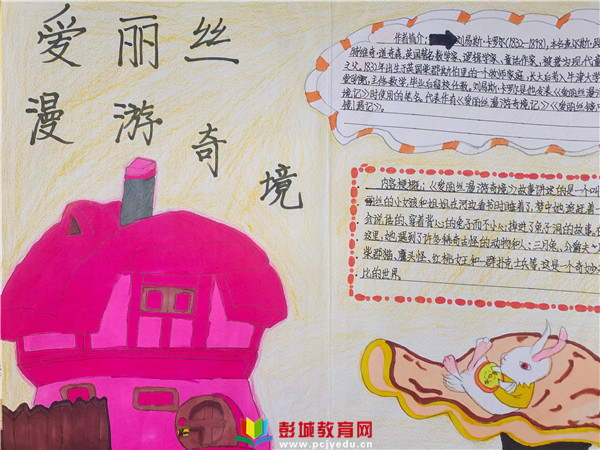 爱丽丝
漫游奇境
作者简介：刘易斯·卡罗尔(1832—1898)，本名查尔斯·
特维奇·道奇森，英国著名数学家、逻辑学家、童话作家，被誉为现代童
之父。1832年出生于英国柴郡斯伯里的一个牧师家庭，长大后考入牛津大学
堂学院，主修数学，毕业后留校任教。刘易斯·卡罗尔是他发表《爱丽丝漫游
境记》时使用的笔名。代表作有《爱丽丝漫游奇境记》《爱丽丝镜中
内容梗概：《爱丽丝漫游奇境》故事讲述的是一个叫
丽丝的小女孩和姐姐在河边看书时睡着了，梦中她追赶着一
会说话的、穿着背心的兔子而不小心掉进了兔子洞的故事。在
这里，她遇到了许多稀奇古怪的动物和人：三月兔、公爵夫人
柴郡猫、鹰头怪、红桃女王和一群扑克士兵等，这是一个奇妙
比的世界
彭城教育网
www.pcjyedu.cn